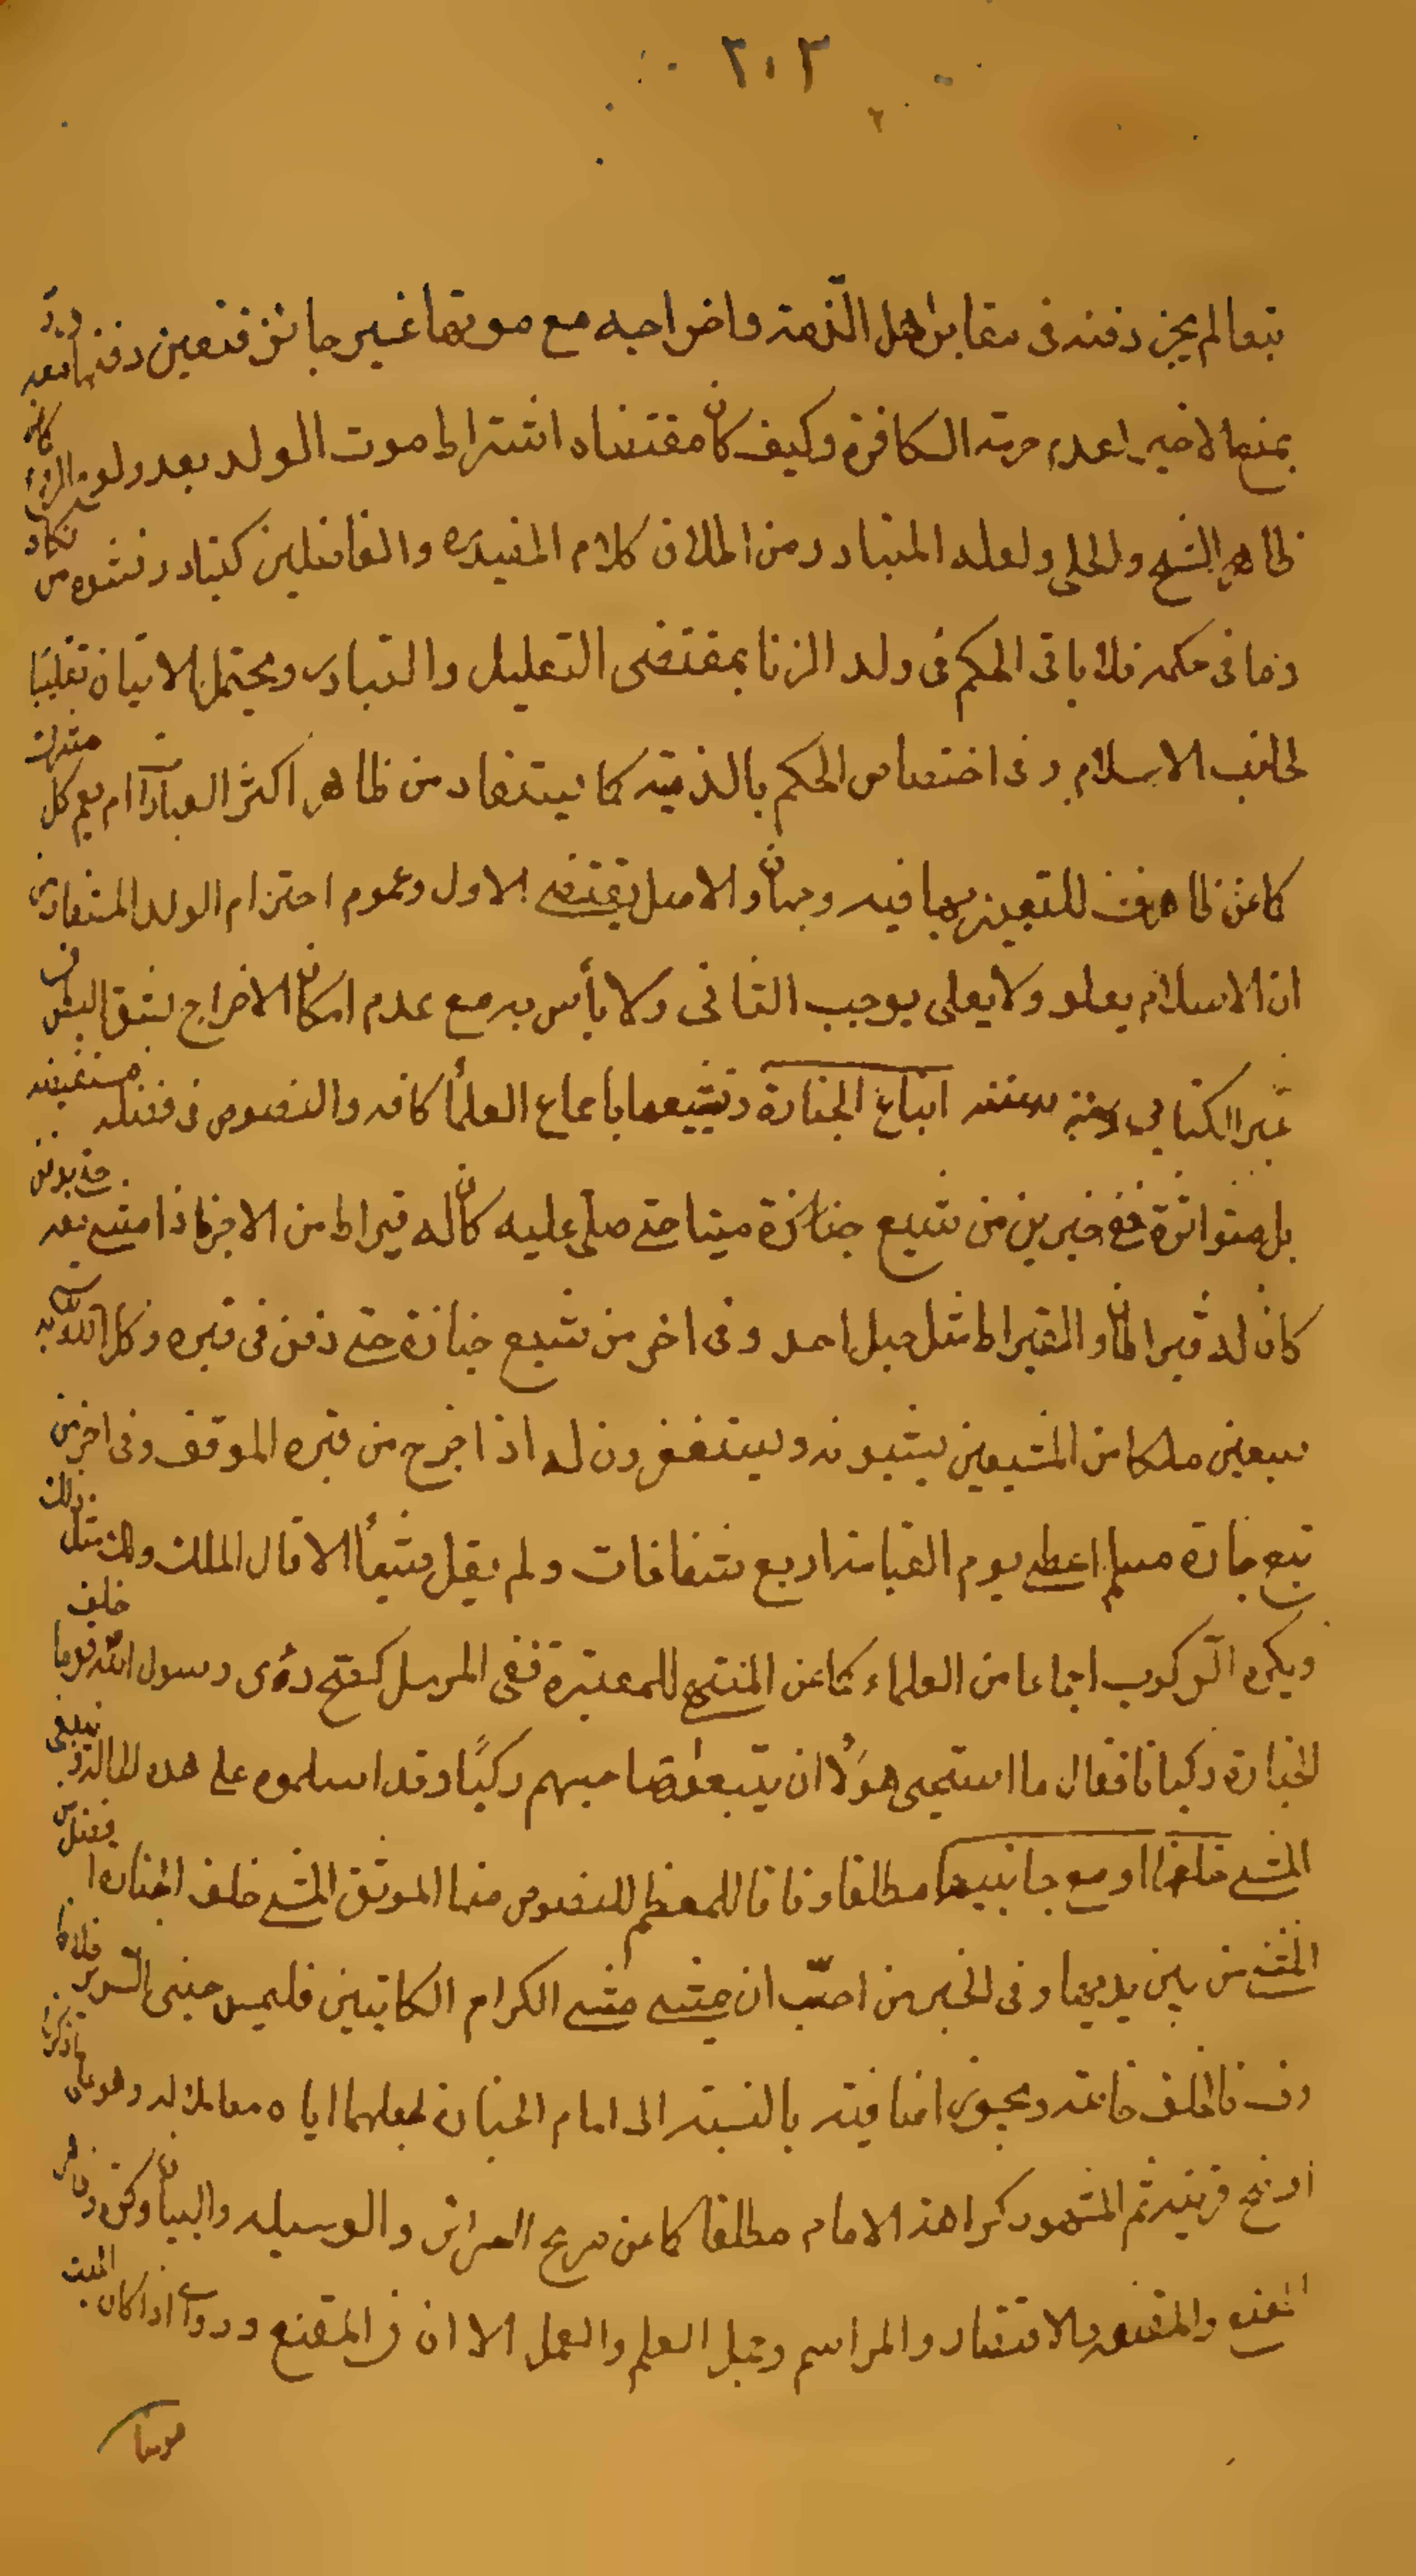 ٢٠٣
تبعا لم يجز دفنه فى مقابر اهل الذمة واخراجه مع موتها غير جائز فتعين دفنها معه
بمنع الاخير لعدم حرمة الكافرة وكيف كان مقتضاه اشتراط موت الولد بعد ولوج الروح
ظاهر الشيخ والحلى ولعله المتبادر من اطلاق كلام المفيد والفاضلين كتبادر نشوه من نكاح
وما فى حكمه فلا ياتى الحكم فى ولد الزنا بمقتضى التعليل والتبادر ويحتمل الاتيان تغليبا
لجانب الاسلام وفى اختصاص الحكم بالذمية كما يستفاد من ظاهر اكثر العبارات ام يعم كل مشركة
كما عن ظاهر ف للتعبير بها فيه وجهان والاصل يقتضى الاول وعموم احترام الولد المستفاد من
ان الاسلام يعلو ولا يعلى يوجب الثانى ولا بأس به مع عدم امكان الاخراج بشق البطن
اتباع الجنازة وتشييعها باجماع العلمأ كافه والنصوص فى فضله مستفيضه
بل متواترة ففى خبرين من شيع جنازة ميتا حتى صلى عليه كان له قيراط من الاجر فاذا مشى معه حتى يدفن
كان له قيراطان والقيراط مثل جبل احد وفى اخر من شيع جنازة حتى دفن فى قبره وكل الله به
سبعين ملكا من المشيعين يشيعونه ويستغفرون له اذا اخرج من قبره الى الموقف وفى اخر من
تبع جنازة مسلم اعطى يوم القيامة اربع شفاعات ولم يقل شيئأ الا قال الملك ولك مثل ذلك
ويكره الركوب اجماعا من العلماء كما عن المنتهى للمعتبرة ففى المرسل كفتح رؤى رسول الله قوما خلف
الجنازة ركبانا فقال ما استحيى هؤلأ ان يتبعوا صاحبهم ركبًا وقد اسلموه على هذه الحالة وينبغى
المشى خلفها او مع جانبيها مطلقا وفاقا للمعظم للنصوص منها الموثق المشى خلف الجنازة افضل من
المشى من بين يديها وفى الخبر من احبّ ان يمشى مشى الكرام الكاتبين فليمش جنبى السرير خلافا
وف فالخلف خاصة ويجوز اضافيته بالنسبة الى امام الجنازة لجعلهما اياه مقابلا له وهو على ما ذكرنا
اوضح قرينة ثم المشهور كراهة الامام مطلقا كما عن صريح السرائر والوسيلة والبيان وكرى وظاهر
المقنع والمقنعه والاقتصاد والمراسم وجمل العلم والعمل الا ان فى المقنع وروى اذا كان الميت
مومنا